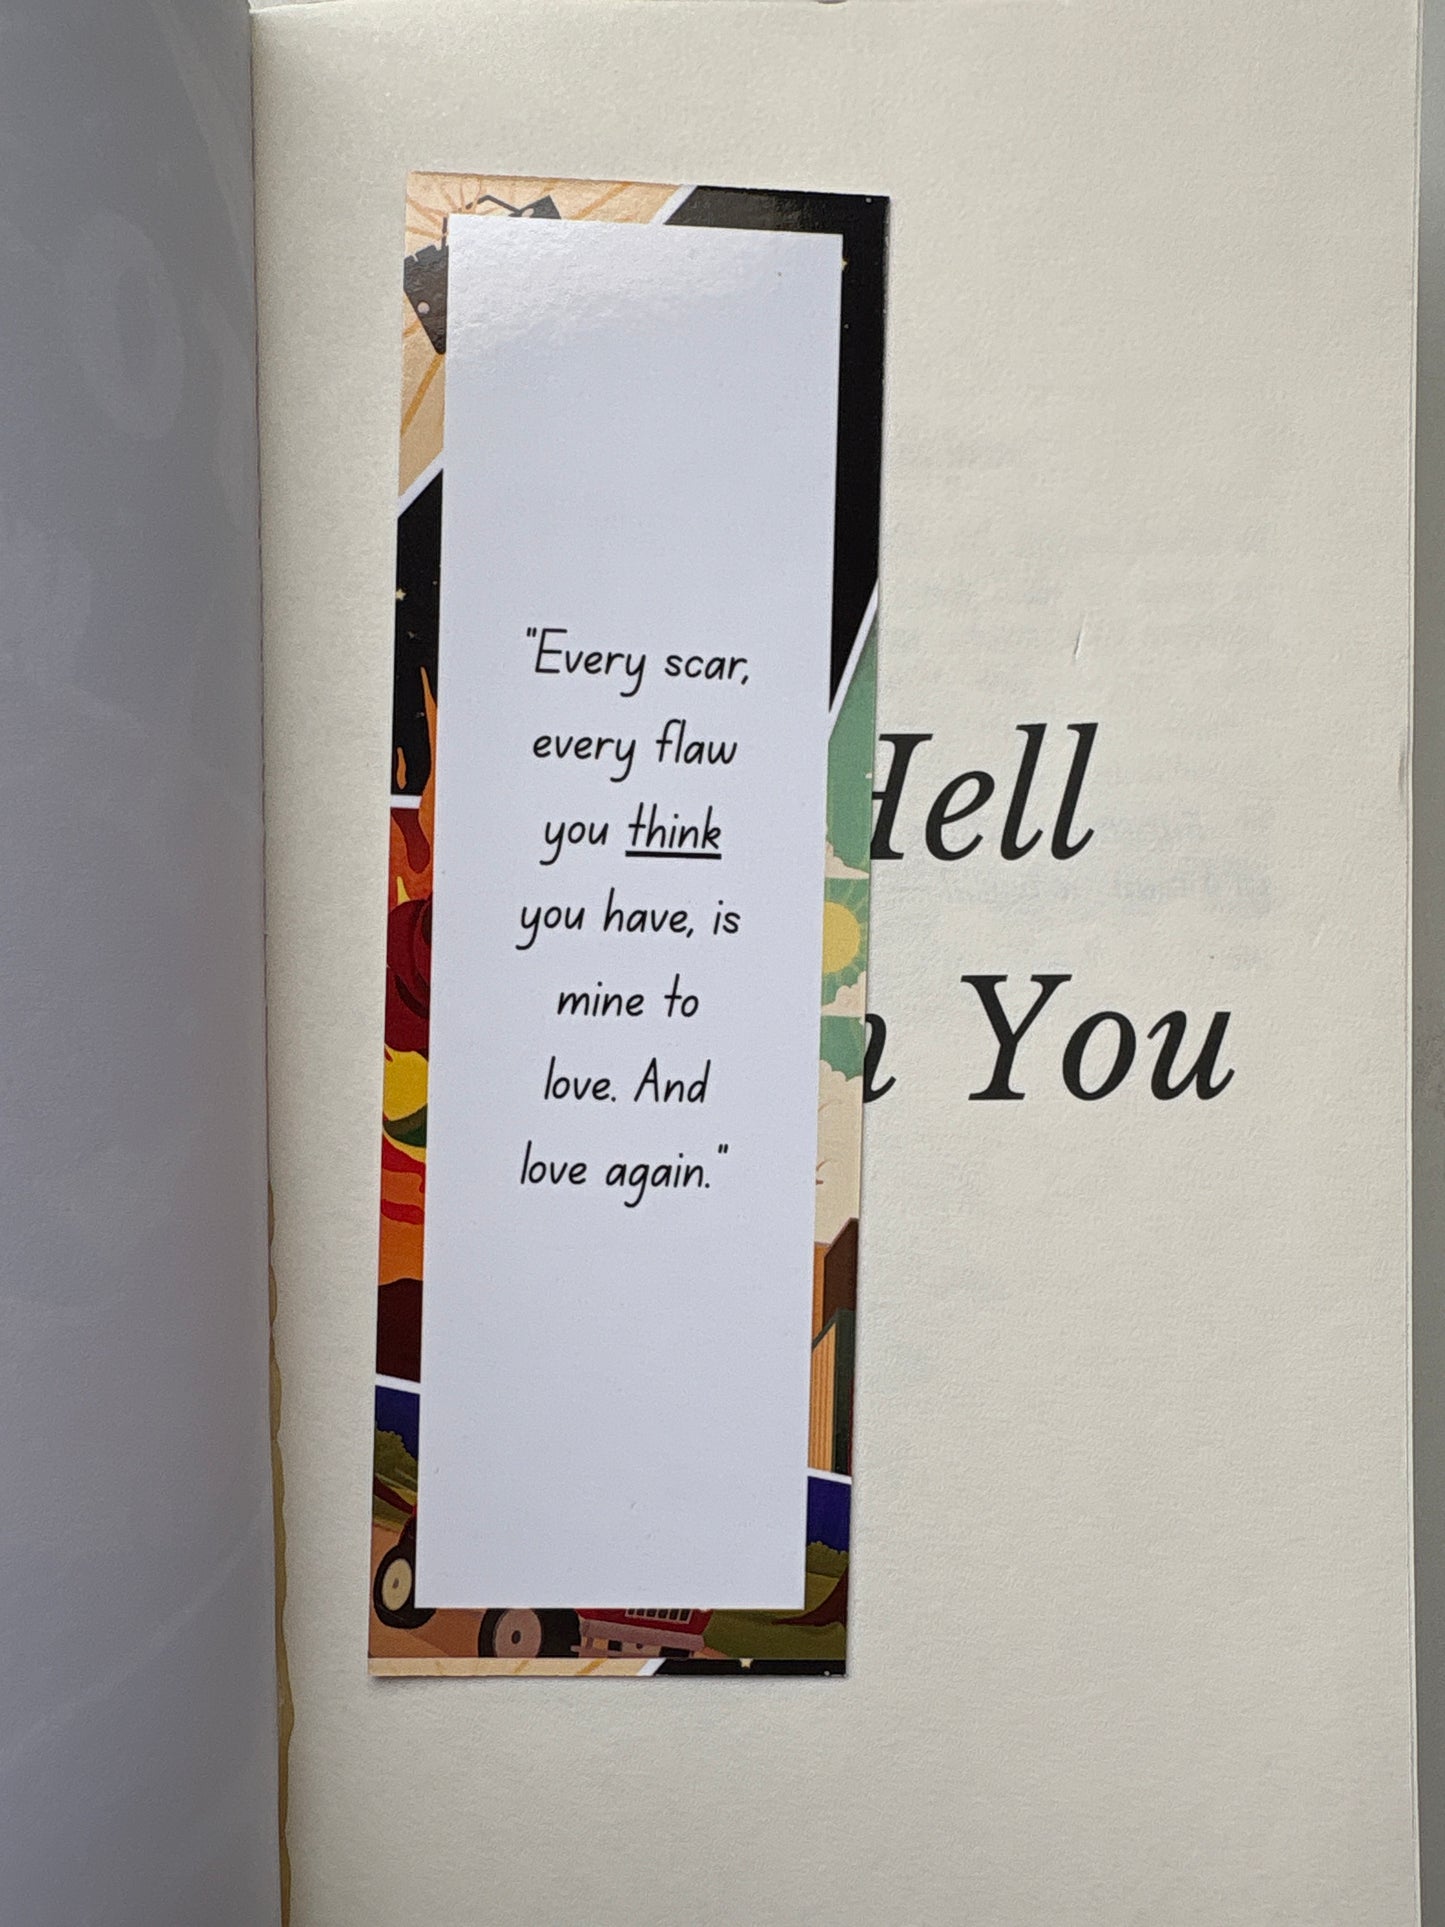 "Every scar,
every flaw
you think
you have, is
mine to
love. And
love again."
Hell
You